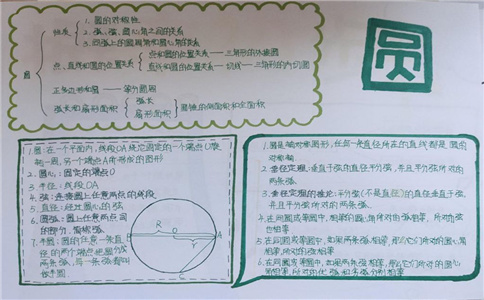 圆
性质
1. 圆的对称性
2. 弧、弦、圆心角之间的关系
3. 同弧上的圆周角和圆心角的关系
点、直线和圆的位置关系
点和圆的位置关系——三角形的外接圆
直线和圆的位置关系——切线——三角形的内切圆
圆
正多边形和圆——等分圆周
弧长和扇形面积
弧长
扇形面积
圆锥的侧面积和全面积
1. 圆:在一个平面内,线段OA绕它固定的一个端点O旋
转一周,另一个端点A所形成的图形
2. 圆心:固定的端点O
3. 半径:线段OA
4. 弦:连接圆上任意两点的线段
5. 直径:经过圆心的弦
6. 圆弧:圆上任意两点间
的部分,简称弧
7. 半圆:圆的任意一条直
径的两个端点把圆分成
两条弧,每一条弧都叫
做半圆
R
O
B
A
r
1. 圆是轴对称图形,任何一条直径所在的直线都是圆的
对称轴
2. 垂径定理:垂直于弦的直径平分弦,并且平分弦所对的
两条弧
3. 垂径定理的推论:平分弦(不是直径)的直径垂直于弦,
并且平分弦所对的两条弧
4. 在同圆或等圆中,相等的圆心角所对的弧相等,所对的弦
也相等
5. 在同圆或等圆中,如果两条弧相等,那么它们所对的圆心角
相等,所对的弦相等
6. 在同圆或等圆中,如果两条弦相等,那么它们所对的圆心角
相等,所对的优弧和劣弧分别相等